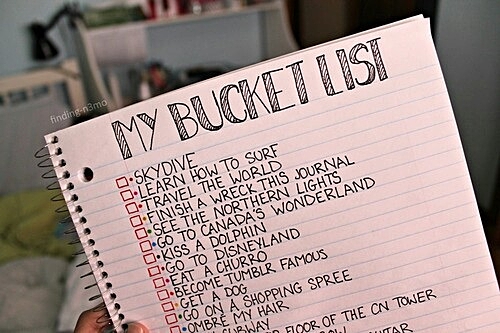 finding-n3mo
MY BUCKET LIST
SKYDIVE
LEARN HOW TO SURF
TRAVEL THE WORLD
FINISH A WRECK THIS JOURNAL
SEE THE NORTHERN LIGHTS
GO TO CANADA'S WONDERLAND
KISS A DOLPHIN
GO TO DISNEYLAND
EAT A CHURRO
BECOME TUMBLR FAMOUS
GET A DOG
GO ON A SHOPPING SPREE
OMBRE MY HAIR
SUBWAY
FLOOR OF THE CN TOWER